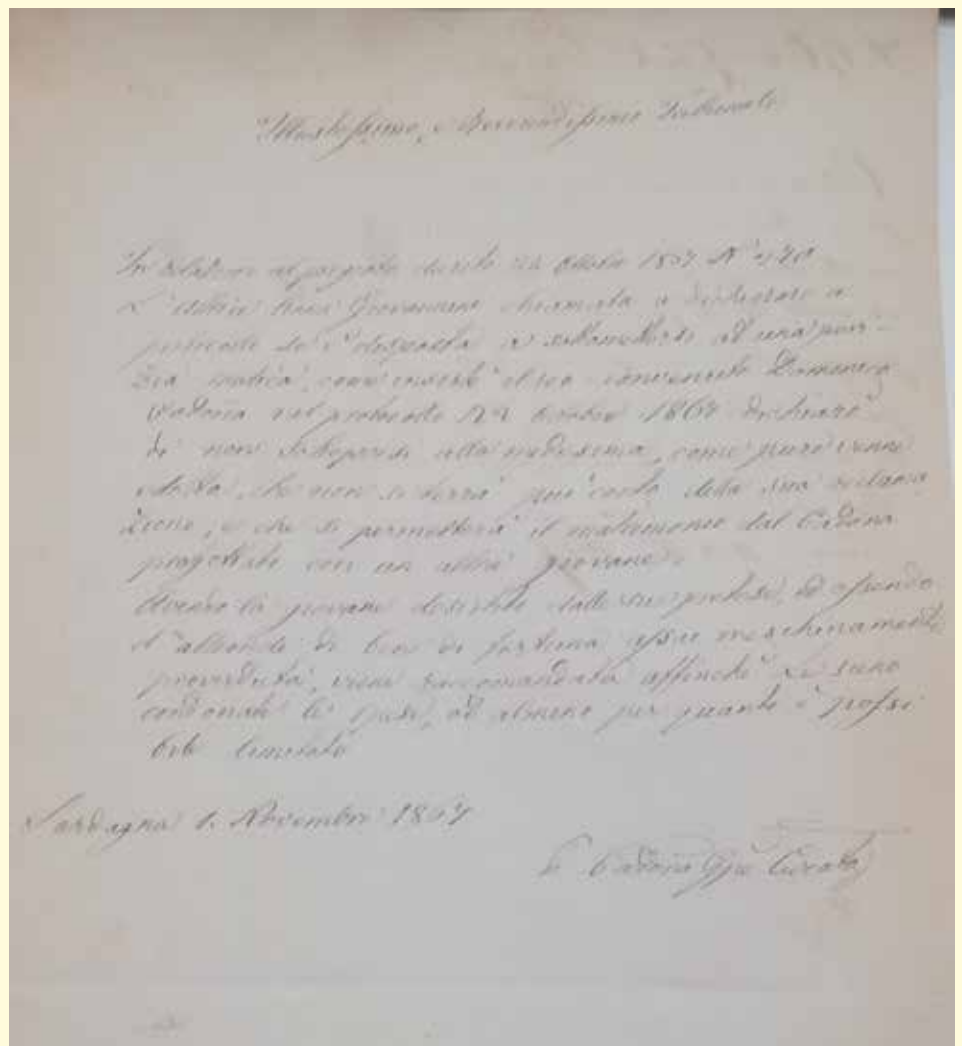 Illustrissimo, e Reverendissimo Tribunale
In relazione al pregiato decreto Ottobre 1867 N°
L' Giovannina chiamata a dichiarare a
protocollo se è disposta a sottomettersi ad una peri-
zia medica, come insiste il reo convenuto Domenico
Cadona nel protocollo 22 Ottobre 1867 dichiarò
di non sottoporsi alla medesima, come pure venne
che non si terrà più conto della sua reclama
zione, e che si permetterà il matrimonio dal Cadona
progettato con un altra giovane.
Avendo la giovane desistito dalle sue pretese, ed essendo
d'altronde di beni di fortuna assai meschinamente
provveduta, viene raccomandata affinché le siano
condonate le spese, od almeno per quanto è possi
bile limitate
Sardagna 1. Novembre 1867
Cadona Curato